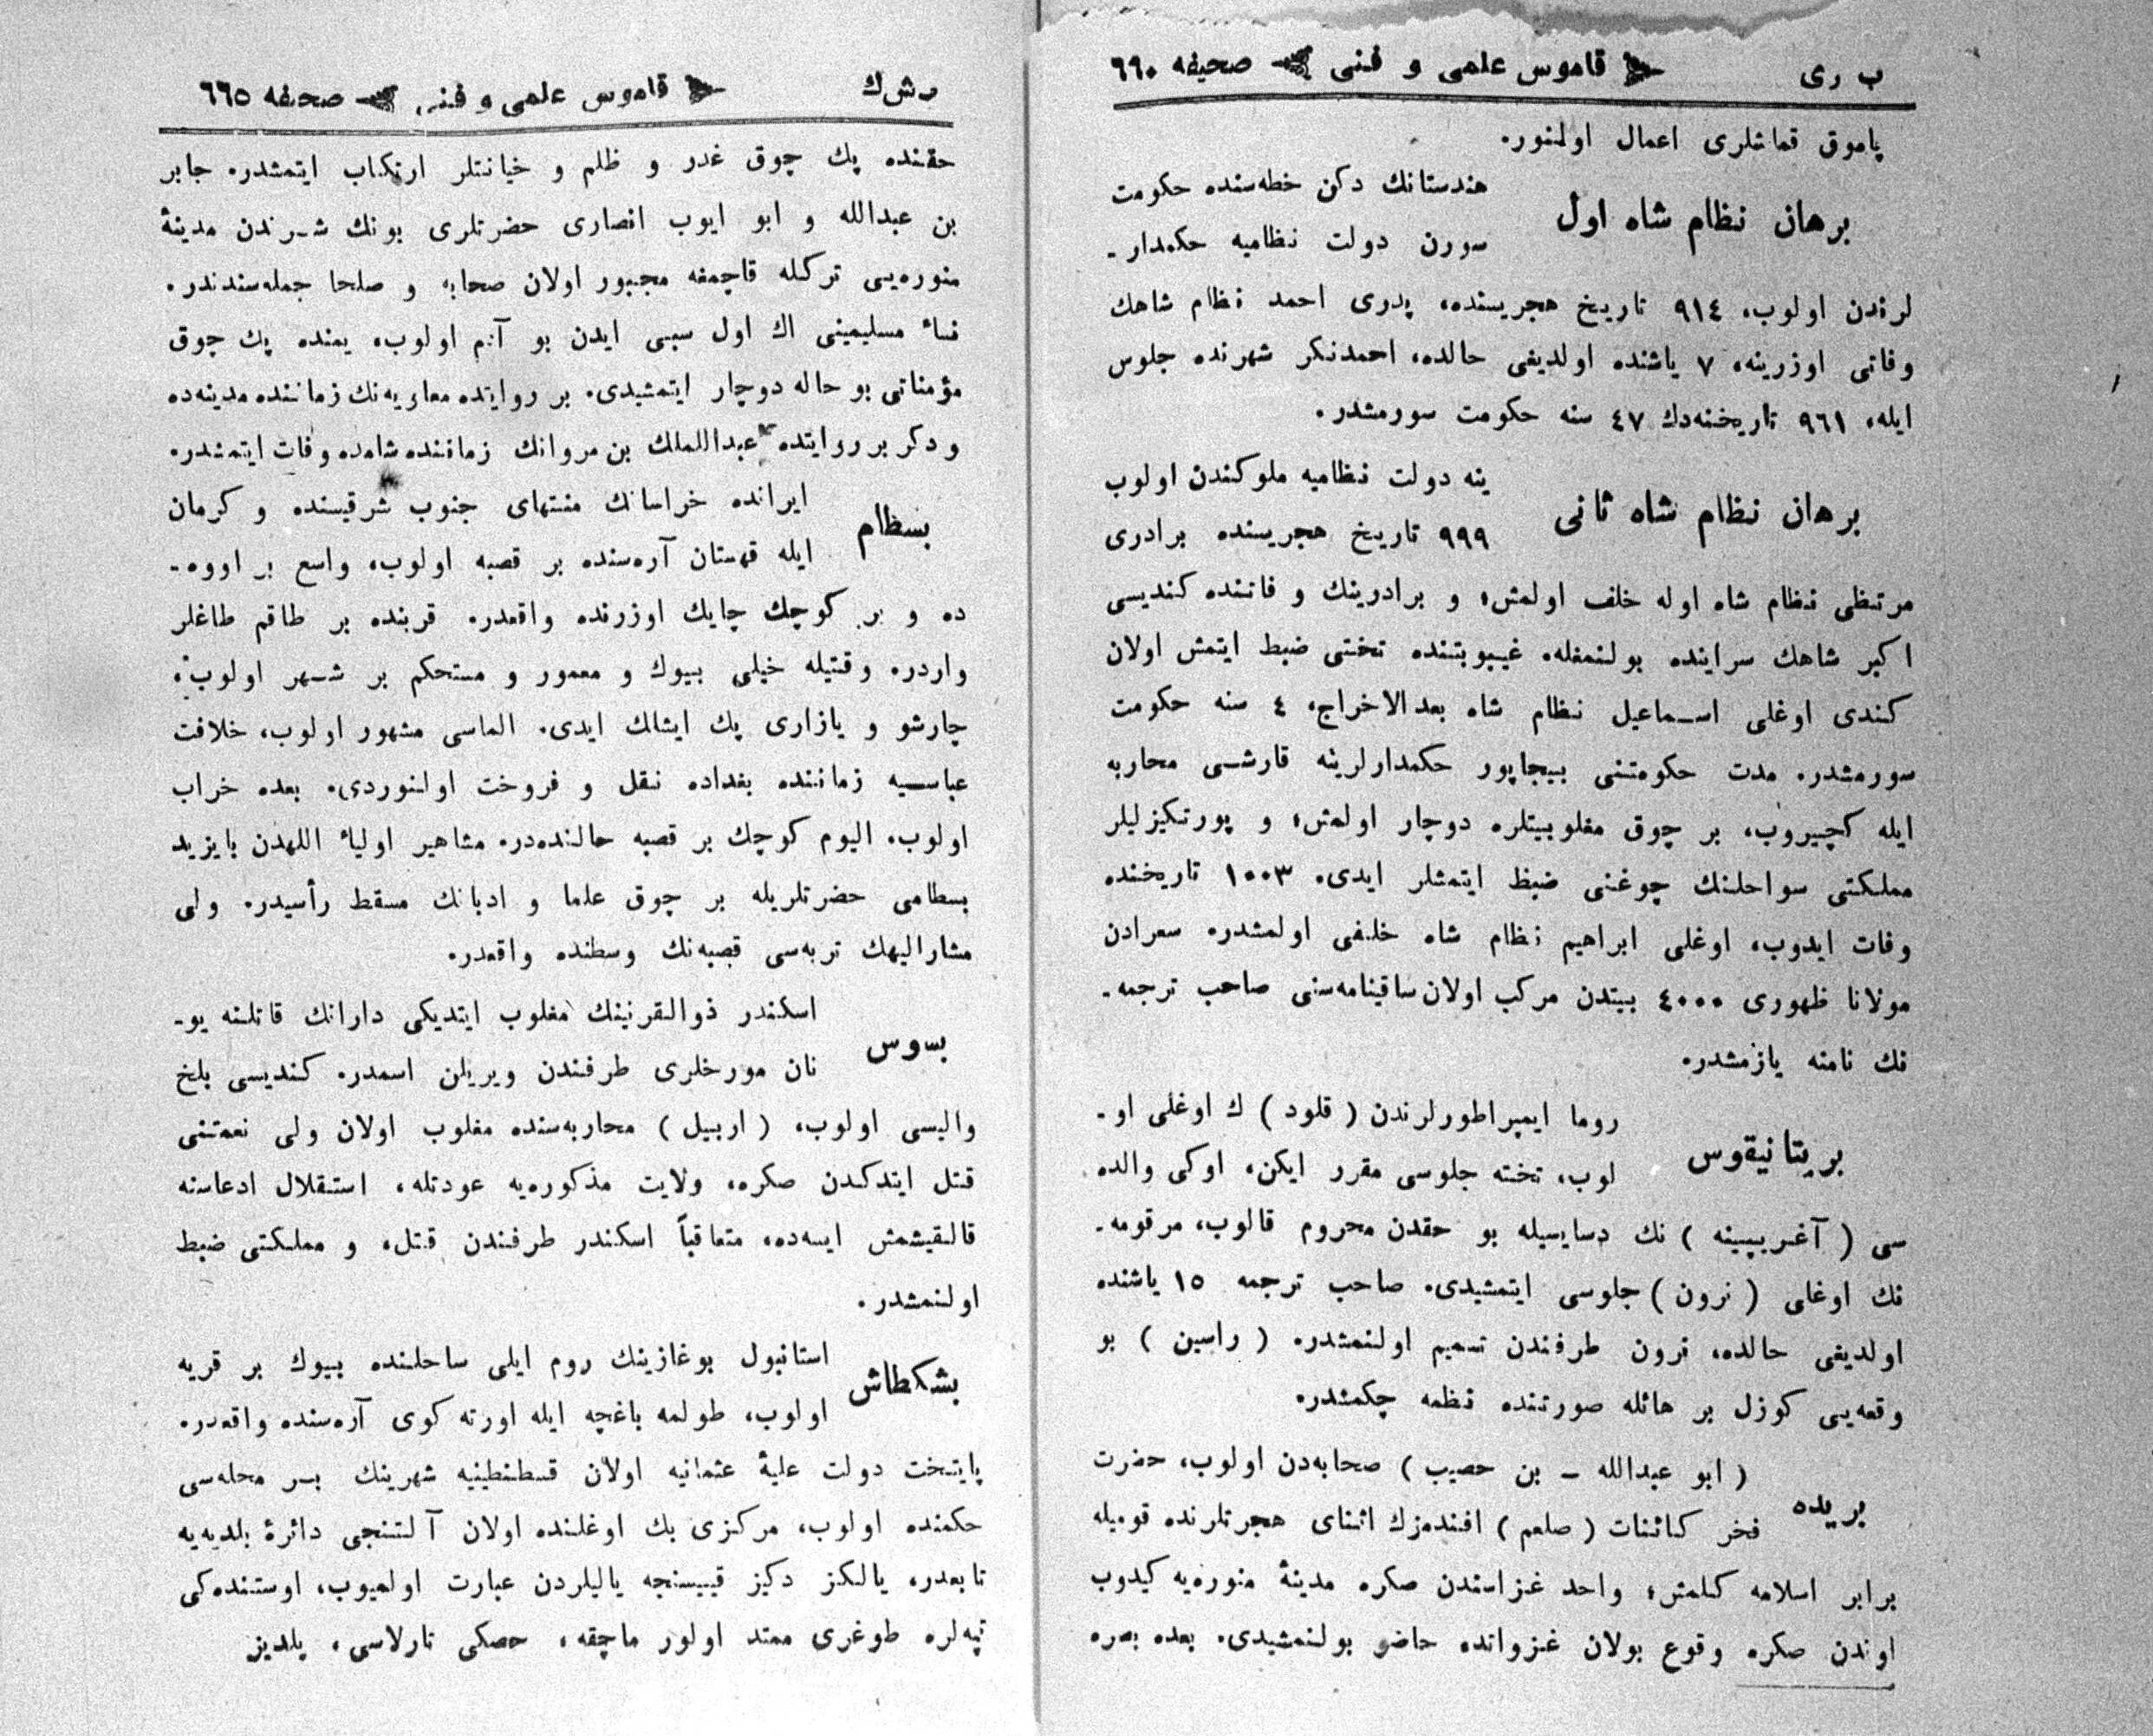 ب ری قاموس علمی و فنی صحیفه ٦٦٠
پاموق قماشلری اعمال اولنور.
هندستانك دكن خطه‌سنده حكومت
برهان نظام شاه اول
سورن دولت نظامیه حكمدار ـ
لرندن اولوب، ٩١٤ تاریخ هجریسنده، پدری احمد نظام شاهك
وفاتی اوزرینه، ٧ یاشنده اولدیغی حالده، احمدنكر شهرنده جلوس
ایله، ٩٦١ تاریخنه‌دك ٤٧ سنه حكومت سورمشدر.
ینه دولت نظامیه ملوكندن اولوب
برهان نظام شاه ثانی
٩٩٩ تاریخ هجریسنده برادری
مرتظی نظام شاه اوله خلف اولمش؛ و برادرینك وفاتنده كندیسی
اكبر شاهك سراینده بولنمغله، غیبوبتنده تختی ضبط ایتمش اولان
كندی اوغلی اسماعیل نظام شاه بعدالاخراج، ٤ سنه حكومت
سورمشدر. مدت حكومتنی بیجاپور حكمدارلرینه قارشی محاربه
ایله كچیروب، بر چوق مغلوبیتلره دوچار اولمش؛ و پورتكیزلیلر
مملكتی سواحلنك چوغنی ضبظ ایتمشلر ایدی. ١٠٠٣ تاریخنده
وفات ایدوب، اوغلی ابراهیم نظام شاه خلفی اولمشدر. سعرادن
مولانا ظهوری ٤٠٠٠ بیتدن مركب اولان ساقینامه‌سنی صاحب ترجمه ـ
نك نامنه یازمشدر.
روما ایمپراطورلرندن ( قلود ) ك اوغلی او ـ
بریتانیقوس
لوب، تخته جلوسی مقرر ایكن، اوكی والده
سی ( آغریپینه ) نك دسایسیله بو حقدن محروم قالوب، مرقومه ـ
نك اوغلی ( نرون ) جلوسی ایتمشیدی. صاحب ترجمه ١٥ یاشنده
اولدیغی حالده، نرون طرفندن تسمیم اولنمشدر. ( راسین ) بو
وقعه‌یی كوزل بر هائله صورتنده نظمه چكمشدر.
( ابو عبدالله ـ بن حصیب ) صحابه‌دن اولوب، حضرت
بریده
فخر كائنات ( صلعم ) افندمزك اثنای هجرتلرنده قومیله
برابر اسلامه كلمش؛ واحد غزاسندن صكره مدینهٔ منوره‌یه كیدوب
اوندن صكره وقوع بولان غزوانده حاضر بولنمشیدی. بعده بصره
ب ش ك قاموس علمی و فنی صحیفه ٦٦٥
حقنده پك چوق غدر و ظلم و خیانتلر ارتكاب ایتمشدر. جابر
بن عبدالله و ابو ایوب انصاری حضرتلری بونك شرندن مدینهٔ
منوره‌یی تركله قاچمغه مجبور اولان صحابه و صلحا جمله‌سندندر.
نساء مسلیمینی اك اول سبی ایدن بو آدم اولوب، یمنده پك چوق
مؤمناتی بو حاله دوچار ایتمشیدی. بر روایتده معاویه‌نك زماننده مدینه‌ده
ودكر بر روایتده عبدالملك بن مروانك زماننده شامده وفات ایتمشدر.
ایرانده خراسانك منتهای جنوب شرقیسنده و كرمان
بسظام
ایله قهستان آره‌سنده بر قصبه اولوب، واسع بر اووه ـ
ده و بر كوچك چایك اوزرنده واقعدر. قربنده بر طاقم طاغلر
واردر. وقتیله خیلی بیوك و معمور و مستحكم بر شهر اولوب،
چارشو و یازاری پك ایشلك ایدی. الماسی مشهور اولوب، خلافت
عباسیه زماننده بغداده نقل و فروخت اولنوردی. بعده خراب
اولوب، الیوم كوچك بر قصبه حالنده‌در. مشاهیر اولیاء اللهدن بایزید
بسطامی حضرتلریله بر چوق علما و ادبانك مسقط رأسیدر. ولی
مشارالیهك تربه‌سی قصبه‌نك وسطنده واقعدر.
اسكندر ذوالقرنینك مغلوب ایتدیكی دارانك قاتلنه یو ـ
بسوس
نان مورخلری طرفندن ویریلن اسمدر. كندیسی بلخ
والیسی اولوب، ( اربیل ) محاربه‌سنده مغلوب اولان ولی نعمتنی
قتل ایتدكدن صكره، ولایت مذكوره‌یه عودتله، استقلال ادعاسنه
قالقیشمش ایسه‌ده، متعاقباً اسكندر طرفندن قتل، و مملكتی ضبط
اولنمشدر.
استانبول بوغازینك روم ایلی ساحلنده بیوك بر قریه
بشكطاش
اولوب، طولمه باغچه ایله اورته كوی آره‌سنده واقعدر.
پایتخت دولت علیهٔ عثمانیه اولان قسطنطینیه شهرینك بر محله‌سی
حكمنده اولوب، مركزی بك اوغلنده اولان آلتنجی دائرهٔ بلدیه‌یه
تابعدر. یالكز دكیز قییسنجه یالیلردن عبارت اولمیوب، اوستنده‌كی
تپه‌لره طوغری ممتد اولور ماچقه، حصكی تارلاسی، یلدیز